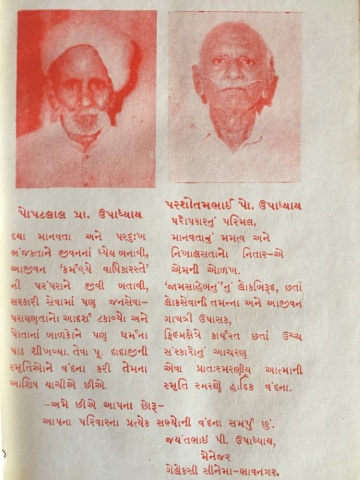 પોપટલાલ પ્રા. ઉપાધ્યાય
દયા માનવતા અને પરદુઃખ
ભંજકતાને જીવનનાં ધ્યેય બનાવી,
આજીવન 'કર્મણ્યે વાધિકારસ્તે'
ની પરંપરાને જીવી બતાવી,
સરકારી સેવામાં પણ જનસેવા-
પરાયણતાનો આદર્શ ટકાવ્યો અને
પોતાનાં બાળકોને પણ ધર્મના
પાઠ શીખવ્યા. તેવા પૂ. દાદાજીની
સ્મૃતિઓને વંદના કરી તેમના
આશિષ યાચીએ છીએ.
પરશોતમભાઈ પો. ઉપાધ્યાય
પરોપકારનું પરિમલ,
માનવતાનું મમત્વ અને
નિખાલસતાનો નિતાર-એ
એમની ઓળખ.
'જામસાહેબ'નું લોકબિરૂદ, છતાં
લોકસેવાની તમન્ના અને આજીવન
ગાયત્રી ઉપાસક,
ફિલ્મક્ષેત્રે કાર્યરત છતાં ઉચ્ચ
સંસ્કારોનું આચરણ
એવા પ્રાતઃસ્મરણીય આત્માની
સ્મૃતિ સ્મરણે હાર્દિક વંદના.
-અમે છીએ આપના છોરૂ-
આપના પરિવારના પ્રત્યેક સભ્યોની વંદના સમર્પું છું.
જયંતભાઈ પી. ઉપાધ્યાય,
મેનેજર
ગેલેકસી સીનેમા-ભાવનગર.